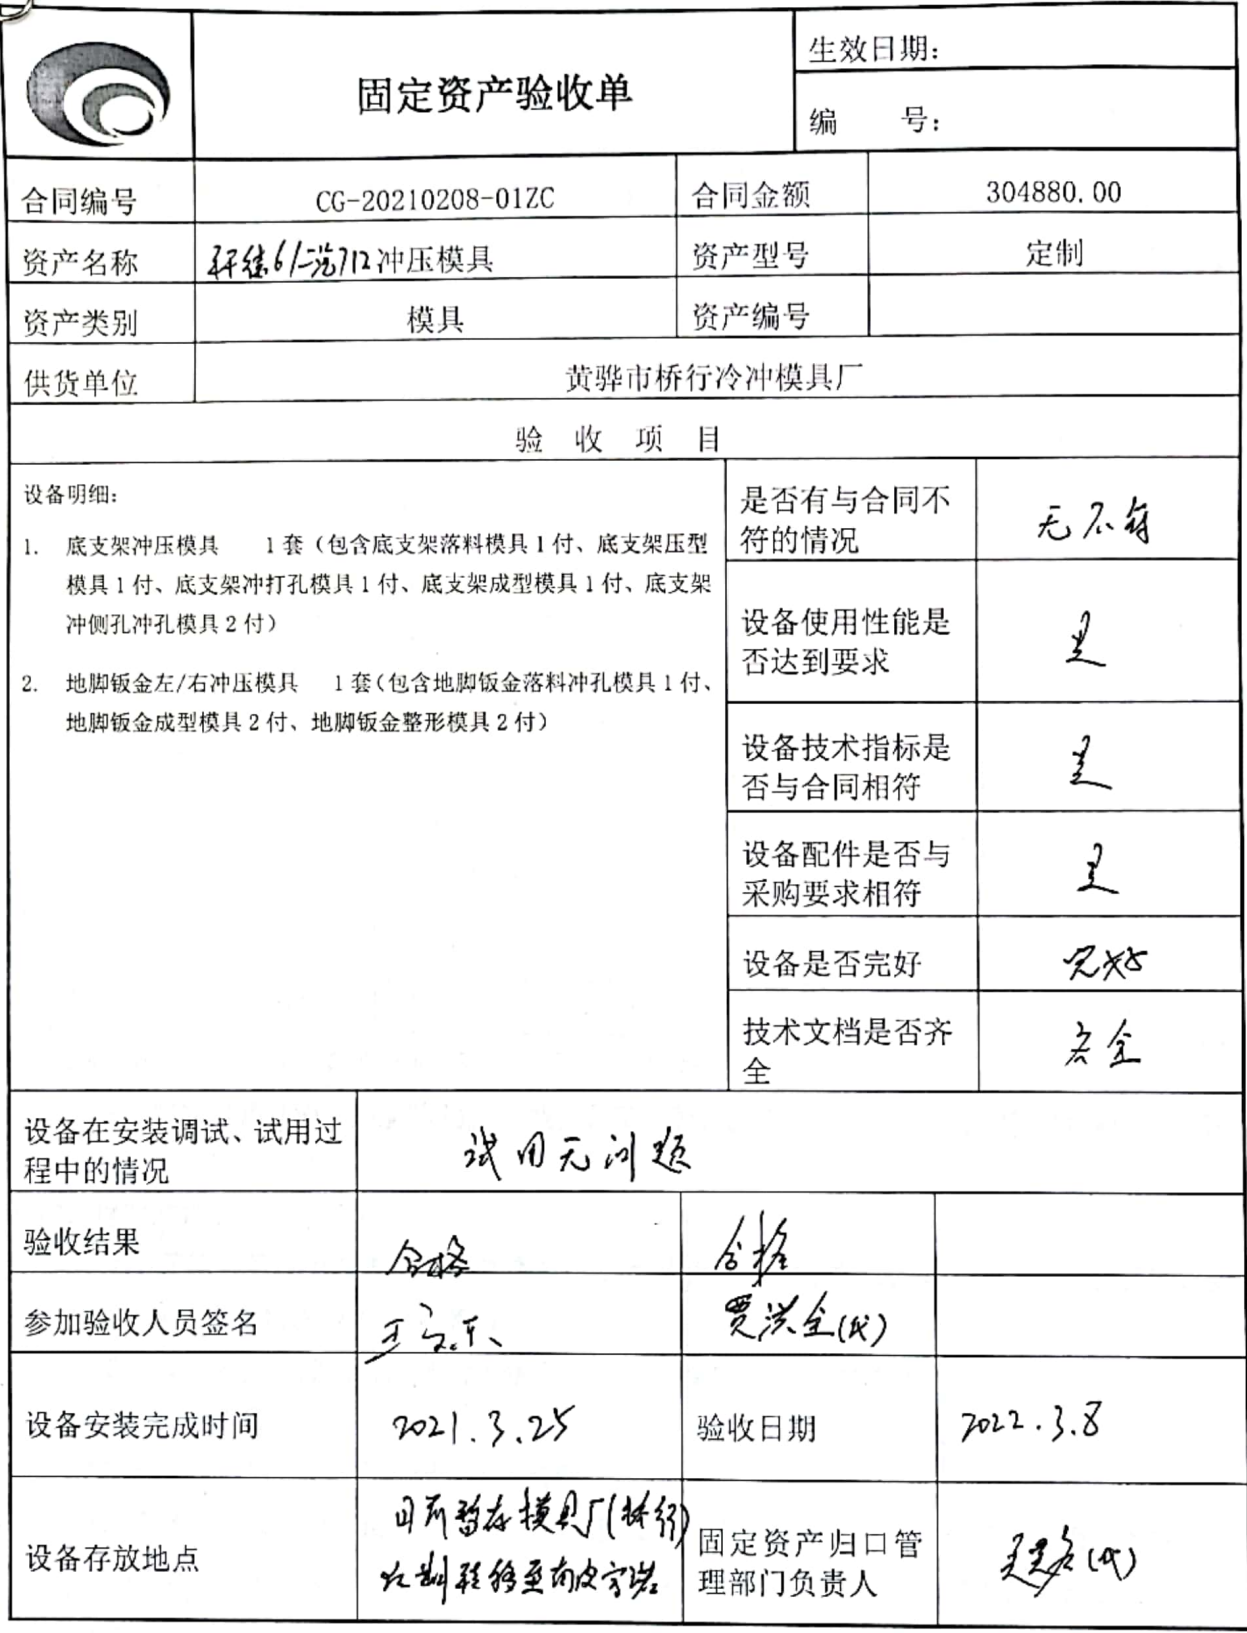 固定资产验收单
生效日期：
编 号：
合同编号 CG-20210208-01ZC 合同金额 304880.00
资产名称 冲压模具 资产型号 定制
资产类别 模具 资产编号
供货单位 黄骅市桥行冷冲模具厂
验 收 项 目
设备明细：
1. 底支架冲压模具 1套（包含底支架落料模具1付、底支架压型
模具1付、底支架冲打孔模具1付、底支架成型模具1付、底支架
冲侧孔冲孔模具2付）
2. 地脚钣金左/右冲压模具 1套（包含地脚钣金落料冲孔模具1付、
地脚钣金成型模具2付、地脚钣金整形模具2付）
是否有与合同不
符的情况
无不符
设备使用性能是
否达到要求
是
设备技术指标是
否与合同相符
是
设备配件是否与
采购要求相符
是
设备是否完好 完好
技术文档是否齐
全
齐全
设备在安装调试、试用过
程中的情况
试用无问题
验收结果 合格 合格
参加验收人员签名 贾洪全(代)
设备安装完成时间 2021.3.25 验收日期 2022.3.8
设备存放地点
目前暂存模具厂(桥行)
固定资产归口管
理部门负责人
(代)